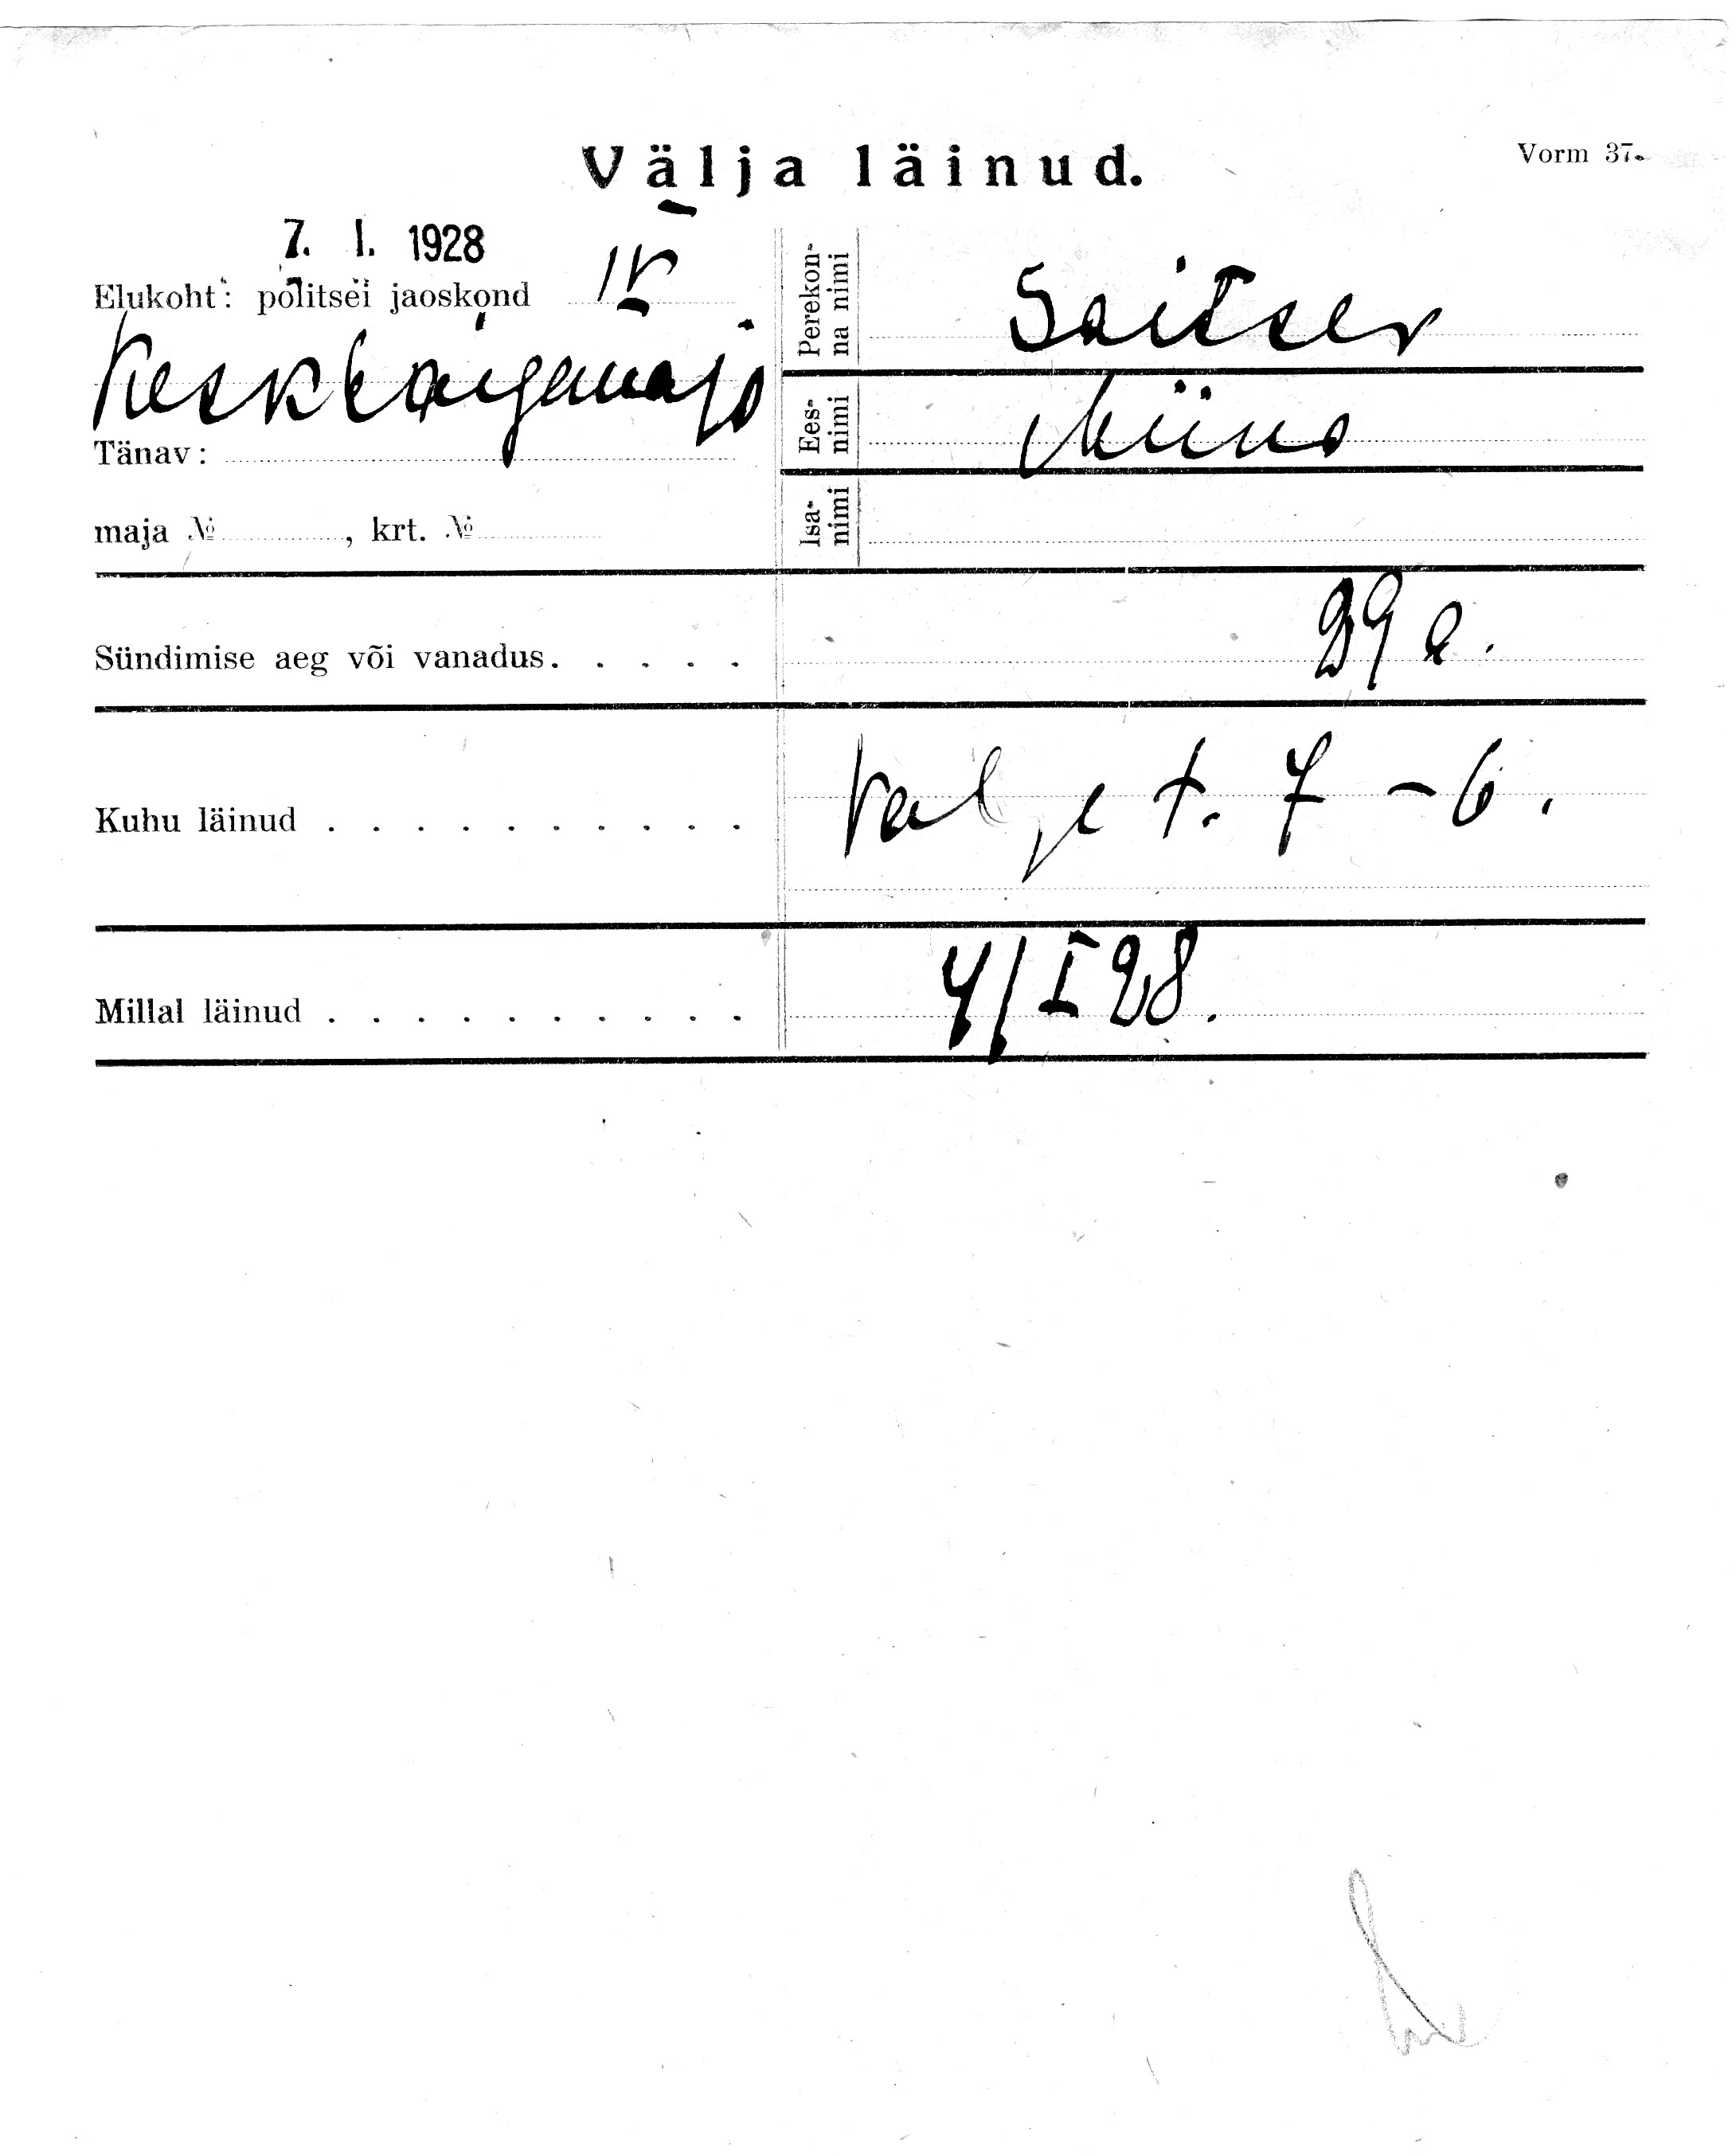 Välja läinud.
Vorm 37.
7. I. 1928
Elukoht: politsei jaoskond IV
Keskhaigemaja
Tänav:
maja №, krt. №
Perekonna nimi Saitser
Eesnimi Miina
Isanimi
Sündimise aeg või vanadus. . . . . 29 a.
Kuhu läinud . . . . . . . . . . Valge t. 7 - 6.
Millal läinud . . . . . . . . . . 4/I 28.